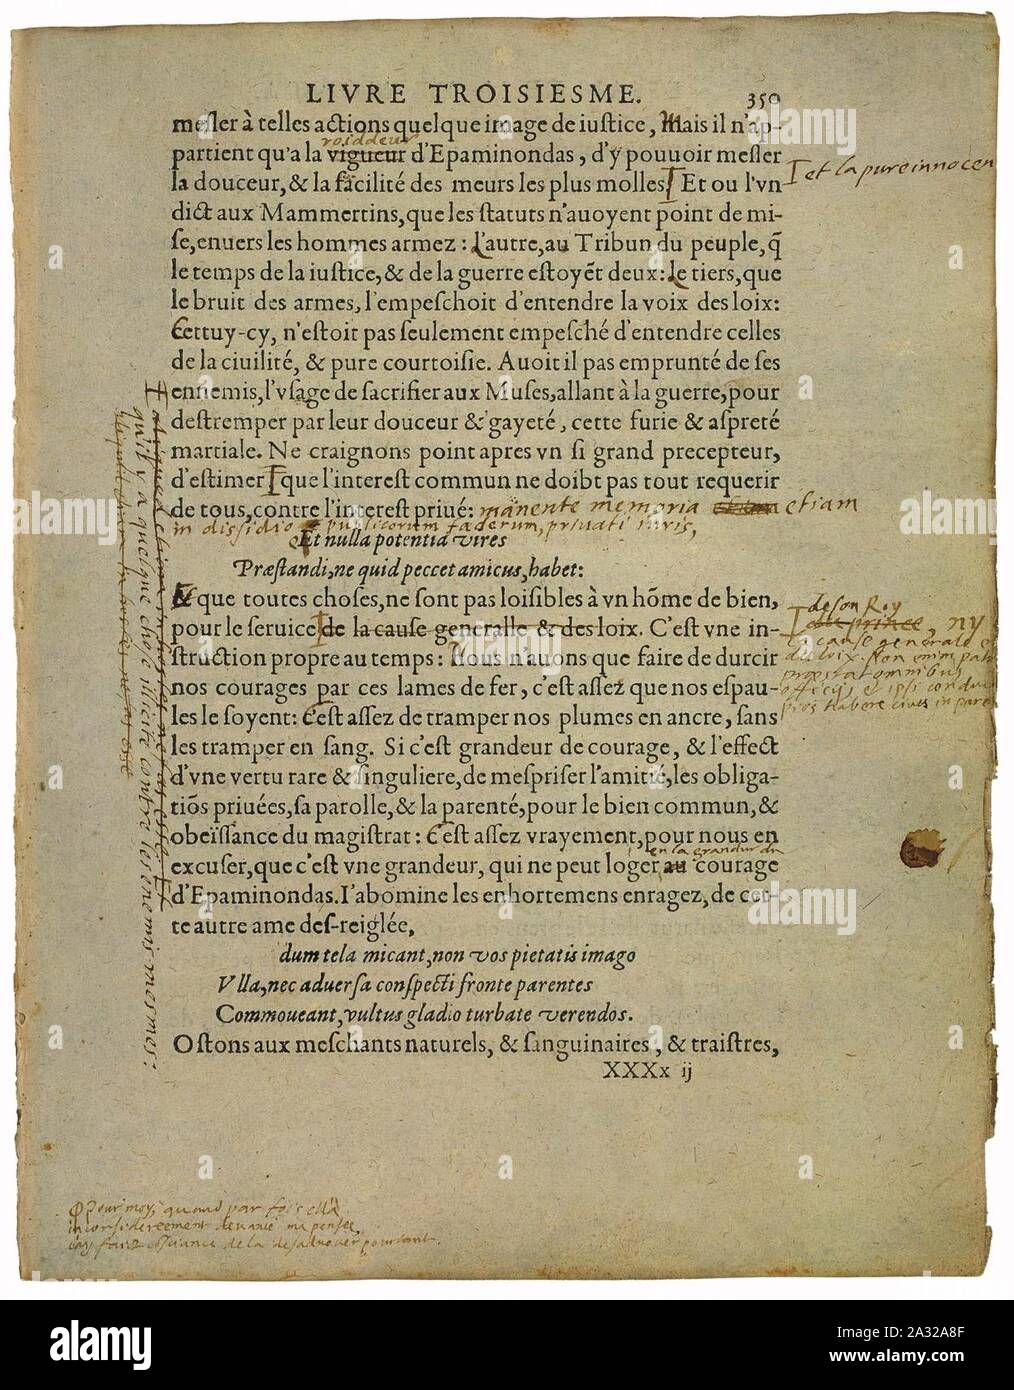 LIVRE TROISIESME. 350
meſler à telles actions quelque image de iuſtice, Mais il n'ap-
roiddeur
partient qu'a la vigueur d'Epaminondas, d'y pouuoir meſler
et la pure innocen
la douceur, & la facilité des meurs les plus molles. Et ou l'vn
dict aux Mammertins, que les ſtatuts n'auoyent point de mi-
ſe, enuers les hommes armez: l'autre, au Tribun du peuple, q̃
le temps de la iuſtice, & de la guerre eſtoyẽt deux: le tiers, que
le bruit des armes, l'empeſchoit d'entendre la voix des loix:
Cettuy-cy, n'eſtoit pas ſeulement empeſché d'entendre celles
de la ciuilité, & pure courtoiſie. Auoit il pas emprunté de ſes
ennemis, l'vſage de ſacrifier aux Muſes, allant à la guerre, pour
deſtremper par leur douceur & gayeté, cette furie & aſpreté
martiale. Ne craignons point apres vn ſi grand precepteur,
d'eſtimer que l'intereſt commun ne doibt pas tout requerir
de tous, contre l'intereſt priué: manente memoria etiam
in dissidio publicorum fœderum, priuati iuris,
Et nulla potentia vires
Præſtandi, ne quid peccet amicus, habet:
& que toutes choſes, ne ſont pas loiſibles à vn hõme de bien,
de son Roy
pour le ſeruice de la cauſe generalle & des loix. C'eſt vne in-
prince, ny
la cause generale et
des loix. Non enim patria
præstat omnibus
officiis, et ipsi conducit
pios habere cives in parentes
ſtruction propre au temps: Nous n'auons que faire de durcir
nos courages par ces lames de fer, c'eſt aſſez que nos eſpau-
les le ſoyent: c'eſt aſſez de tramper nos plumes en ancre, ſans
les tramper en ſang. Si c'eſt grandeur de courage, & l'effect
d'vne vertu rare & ſinguliere, de meſpriſer l'amitié, les obliga-
tiõs priuées, ſa parolle, & la parenté, pour le bien commun, &
obeïſſance du magiſtrat: c'eſt aſſez vrayement, pour nous en
en la grandur du
excuſer, que c'eſt vne grandeur, qui ne peut loger au courage
d'Epaminondas. I'abomine les enhortemens enragez, de cet-
te autre ame deſ-reiglée,
dum tela micant, non vos pietatis imago
Vlla, nec aduerſa conſpecti fronte parentes
Commoueant, vultus gladio turbate verendos.
Oſtons aux meſchants naturels, & ſanguinaires, & traiſtres,
XXXx ij
qu'il y a quelque chose illicite contre les enemis mesmes:
Pour moy, quand par fois ell'a
inconsidereement devancé ma pensee
de la desadvouer pourtant.
alamy
Image ID: 2A32A8F
www.alamy.com